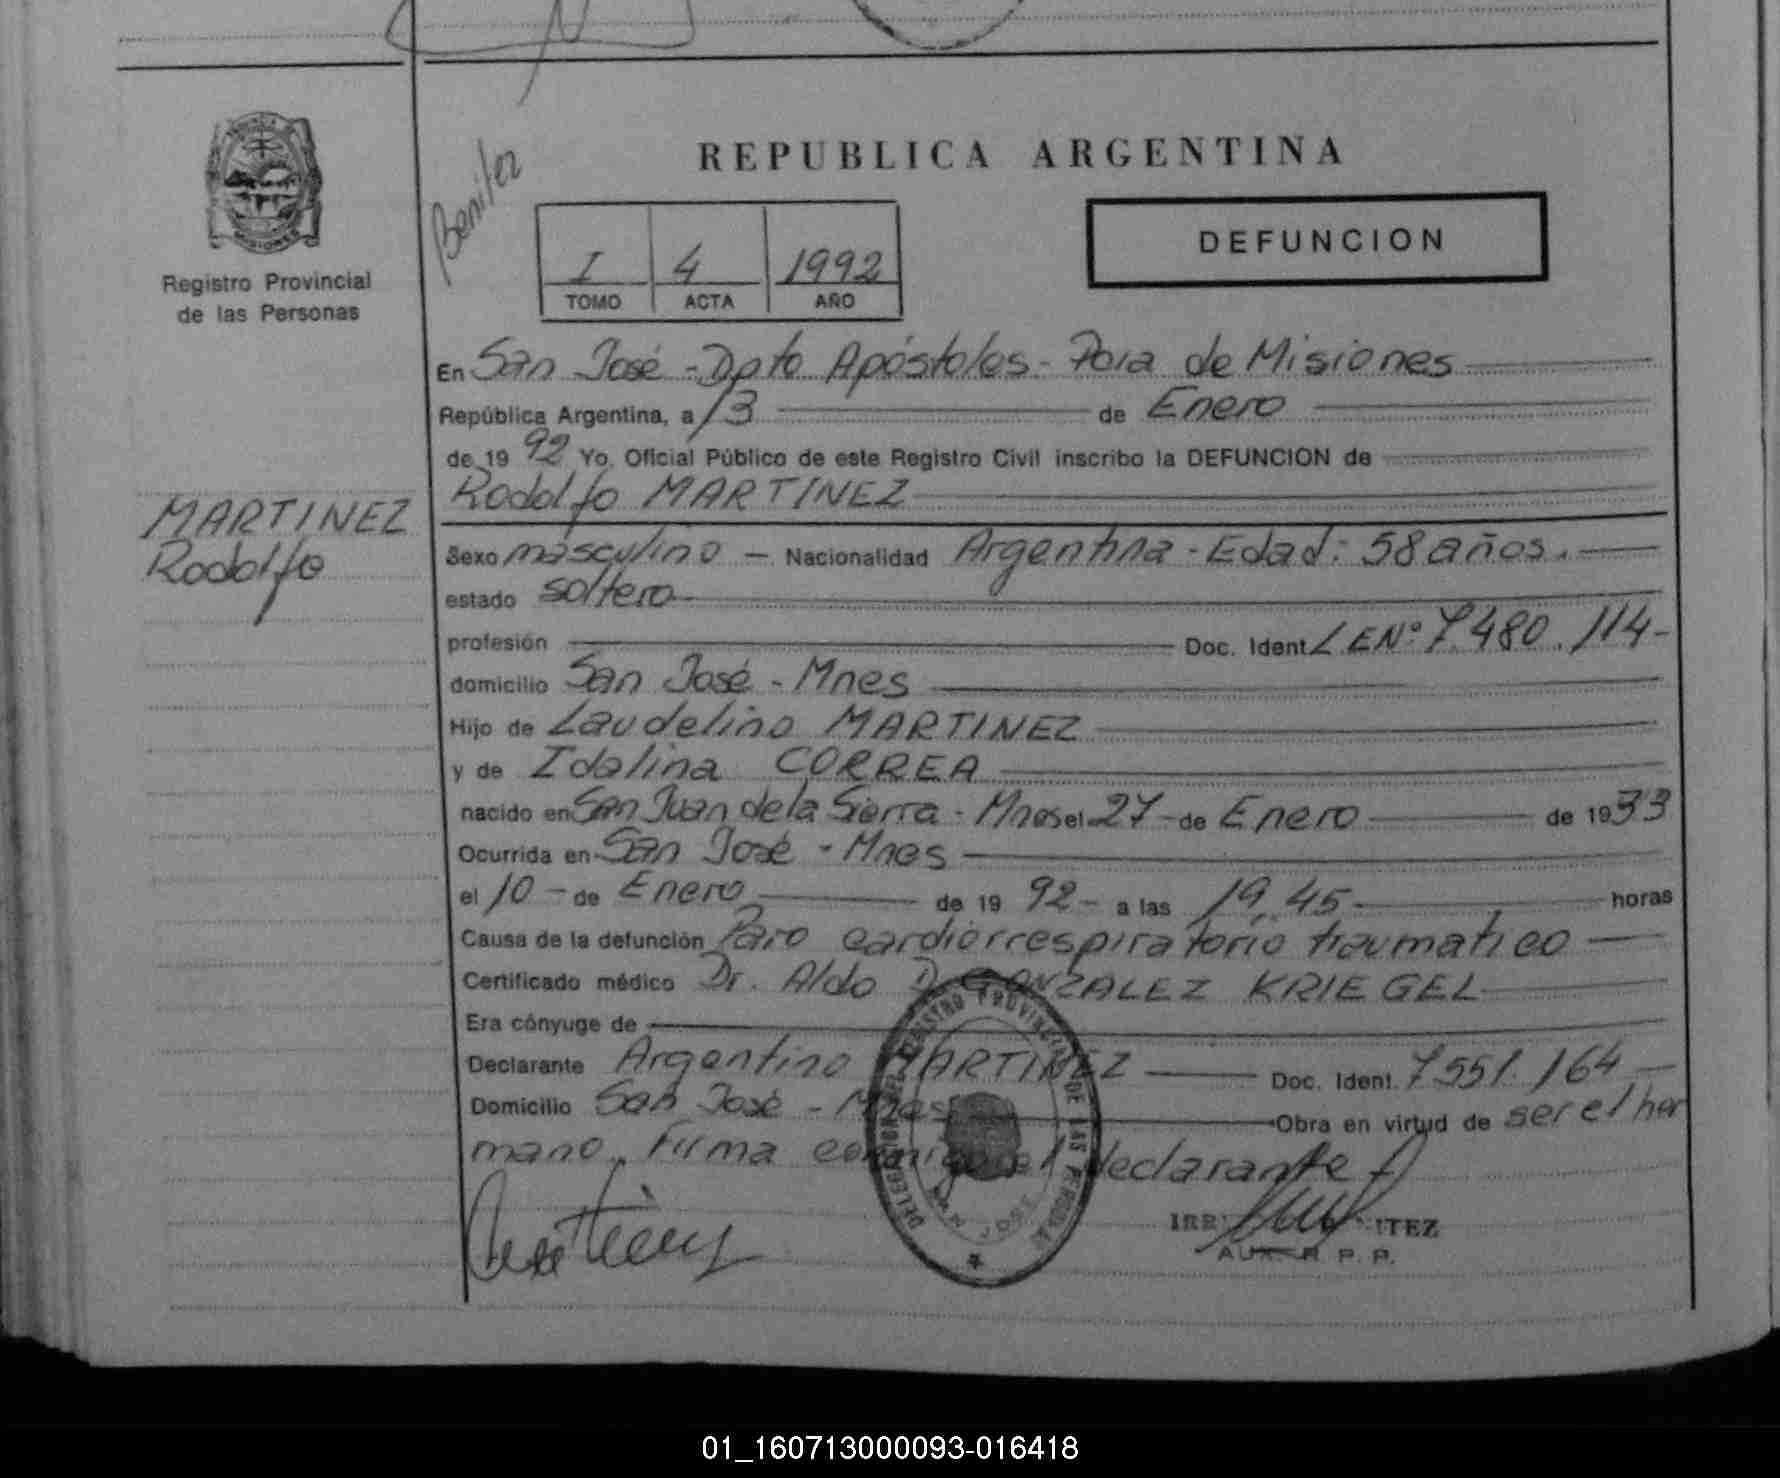 PROVINCIA DE
MISIONES
Registro Provincial
de las Personas
Benitez
REPUBLICA ARGENTINA
I 4 1992
TOMO ACTA AÑO
DEFUNCION
En San José - Dpto Apóstoles - Pcia de Misiones
República Argentina, a 13 de Enero
de 19 92 Yo, Oficial Público de este Registro Civil inscribo la DEFUNCION de
Rodolfo MARTINEZ
MARTINEZ
Rodolfo
Sexo masculino - Nacionalidad Argentina - Edad: 58 años.
estado soltero
profesión Doc. Ident. L.E.Nº 7.480.114-
domicilio San José - Mnes
Hijo de Laudelino MARTINEZ
y de Idalina CORREA
nacido en San Juan de la Sierra - Mnes el 27 - de Enero de 1933
Ocurrida en San José - Mnes
el 10 - de Enero de 19 92 - a las 19,45 horas
Causa de la defunción Paro cardiorrespiratorio traumatico
Certificado médico Dr. Aldo D. GONZALEZ KRIEGEL
Era cónyuge de
Declarante Argentino MARTINEZ Doc. Ident. 7.551.164
Domicilio San José - Mnes Obra en virtud de ser el her
mano. Firma conmigo el declarante
DELEGACION DEL REGISTRO PROVINCIAL DE LAS PERSONAS
SAN JOSE
ITEZ
AUX. R. P. P.
01_160713000093-016418